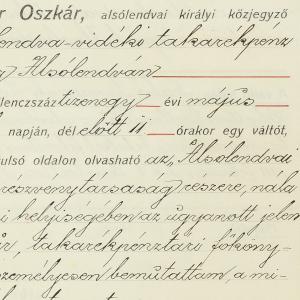 r Oszkár, alsólendvai királyi közjegyző
lendva-vidéki takarékpénz
Alsólendván
lenczszáz tizenegy évi május
napján, dél előtt 11 órakor egy váltót,
ulsó oldalon olvasható az „Alsólendvai
részvénytársaság részére, nála
i helyiségében az ugyanott jelen
úr, takarékpénztári főköny-
személyesen bemutattam, a mi-